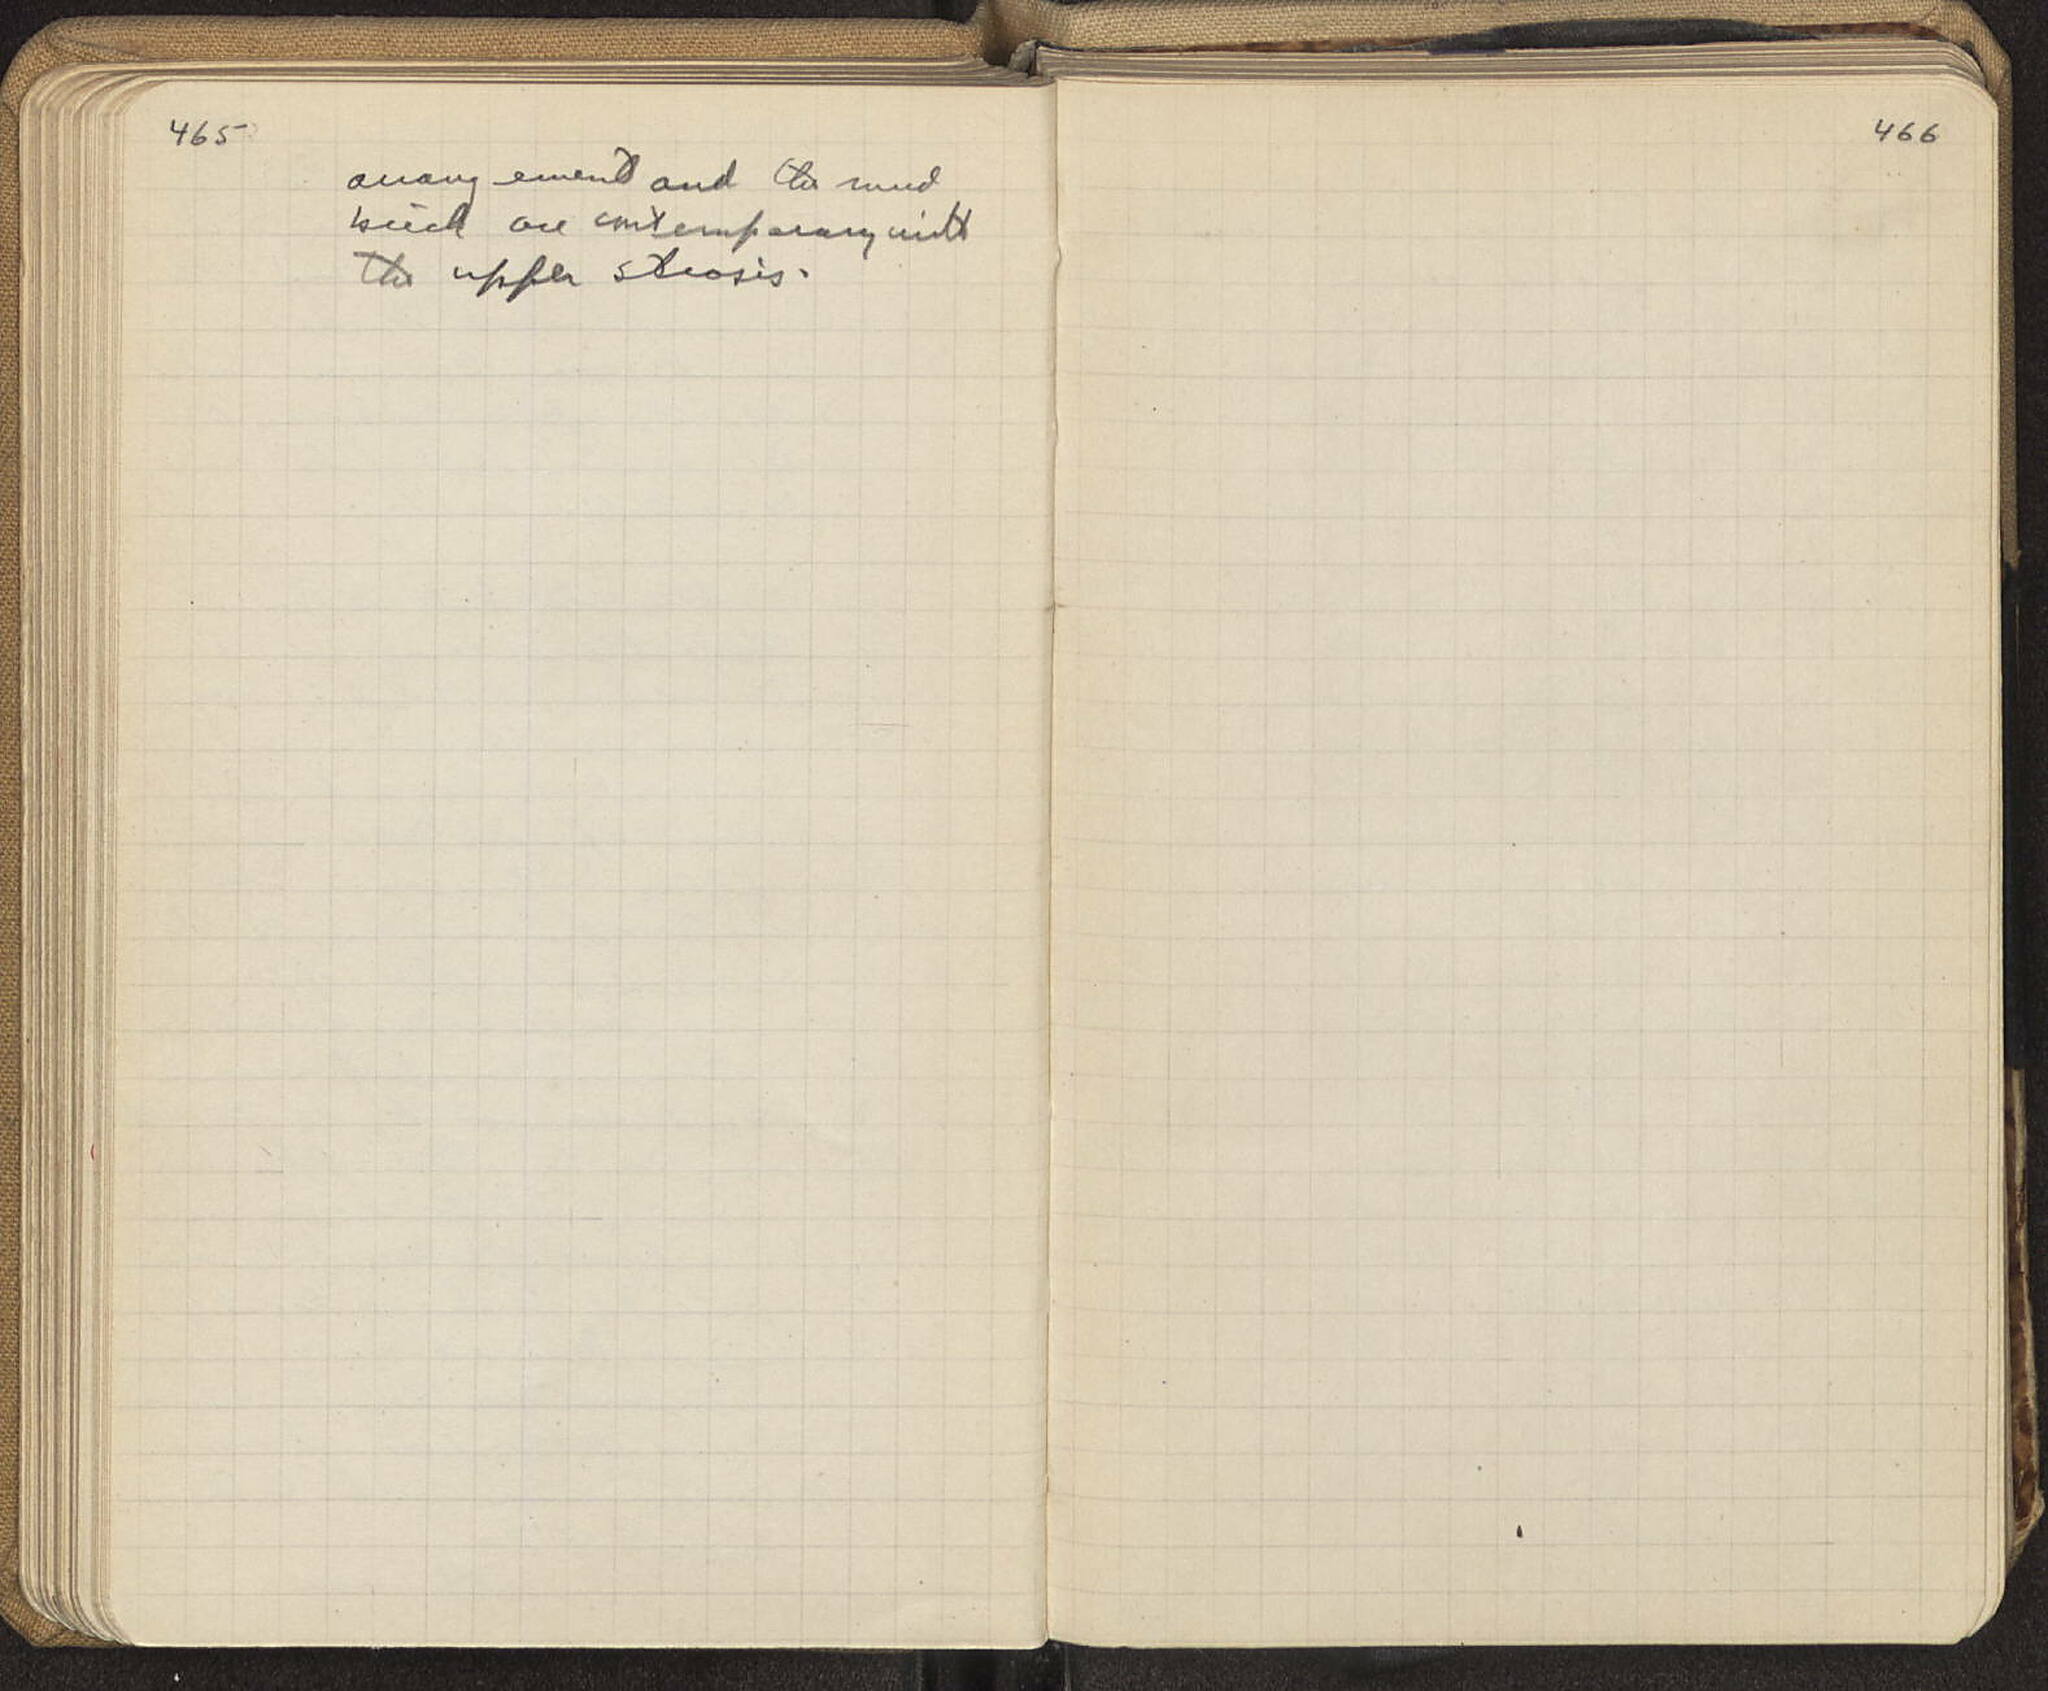 465
arrangement and the mud
brick are contemporary with
the upper strosis.
466